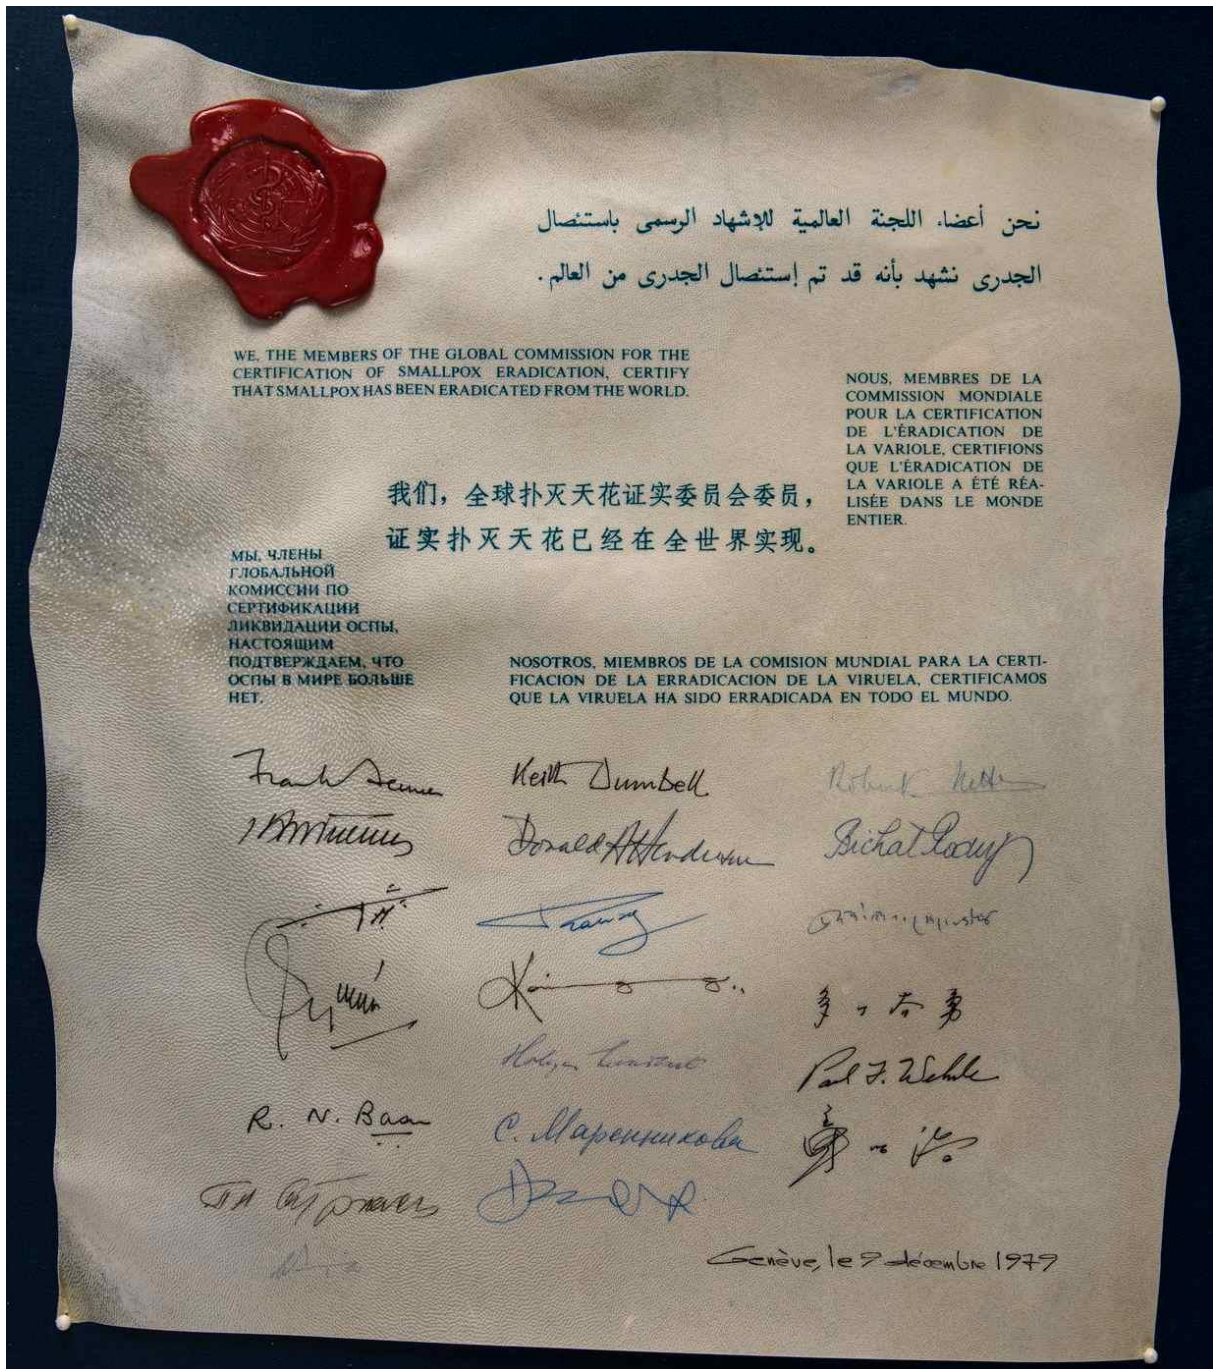 نحن أعضاء اللجنة العالمية للإشهاد الرسمى باستئصال
الجدرى نشهد بأنه قد تم إستئصال الجدرى من العالم.
WE, THE MEMBERS OF THE GLOBAL COMMISSION FOR THE
CERTIFICATION OF SMALLPOX ERADICATION, CERTIFY
THAT SMALLPOX HAS BEEN ERADICATED FROM THE WORLD.
NOUS, MEMBRES DE LA
COMMISSION MONDIALE
POUR LA CERTIFICATION
DE L'ÉRADICATION DE
LA VARIOLE, CERTIFIONS
QUE L'ÉRADICATION DE
LA VARIOLE A ÉTÉ RÉA-
LISÉE DANS LE MONDE
ENTIER.
我们，全球扑灭天花证实委员会委员，
证实扑灭天花已经在全世界实现。
МЫ, ЧЛЕНЫ
ГЛОБАЛЬНОЙ
КОМИССИИ ПО
СЕРТИФИКАЦИИ
ЛИКВИДАЦИИ ОСПЫ,
НАСТОЯЩИМ
ПОДТВЕРЖДАЕМ, ЧТО
ОСПЫ В МИРЕ БОЛЬШЕ
НЕТ.
NOSOTROS, MIEMBROS DE LA COMISION MUNDIAL PARA LA CERTI-
FICACION DE LA ERRADICACION DE LA VIRUELA, CERTIFICAMOS
QUE LA VIRUELA HA SIDO ERRADICADA EN TODO EL MUNDO.
Frank Fenner
Keith Dumbell
Robert
Donald A Henderson
Bichat
Paul F. Wehrle
R. N. Basu
С. Маренникова
Genève, le 9 décembre 1979